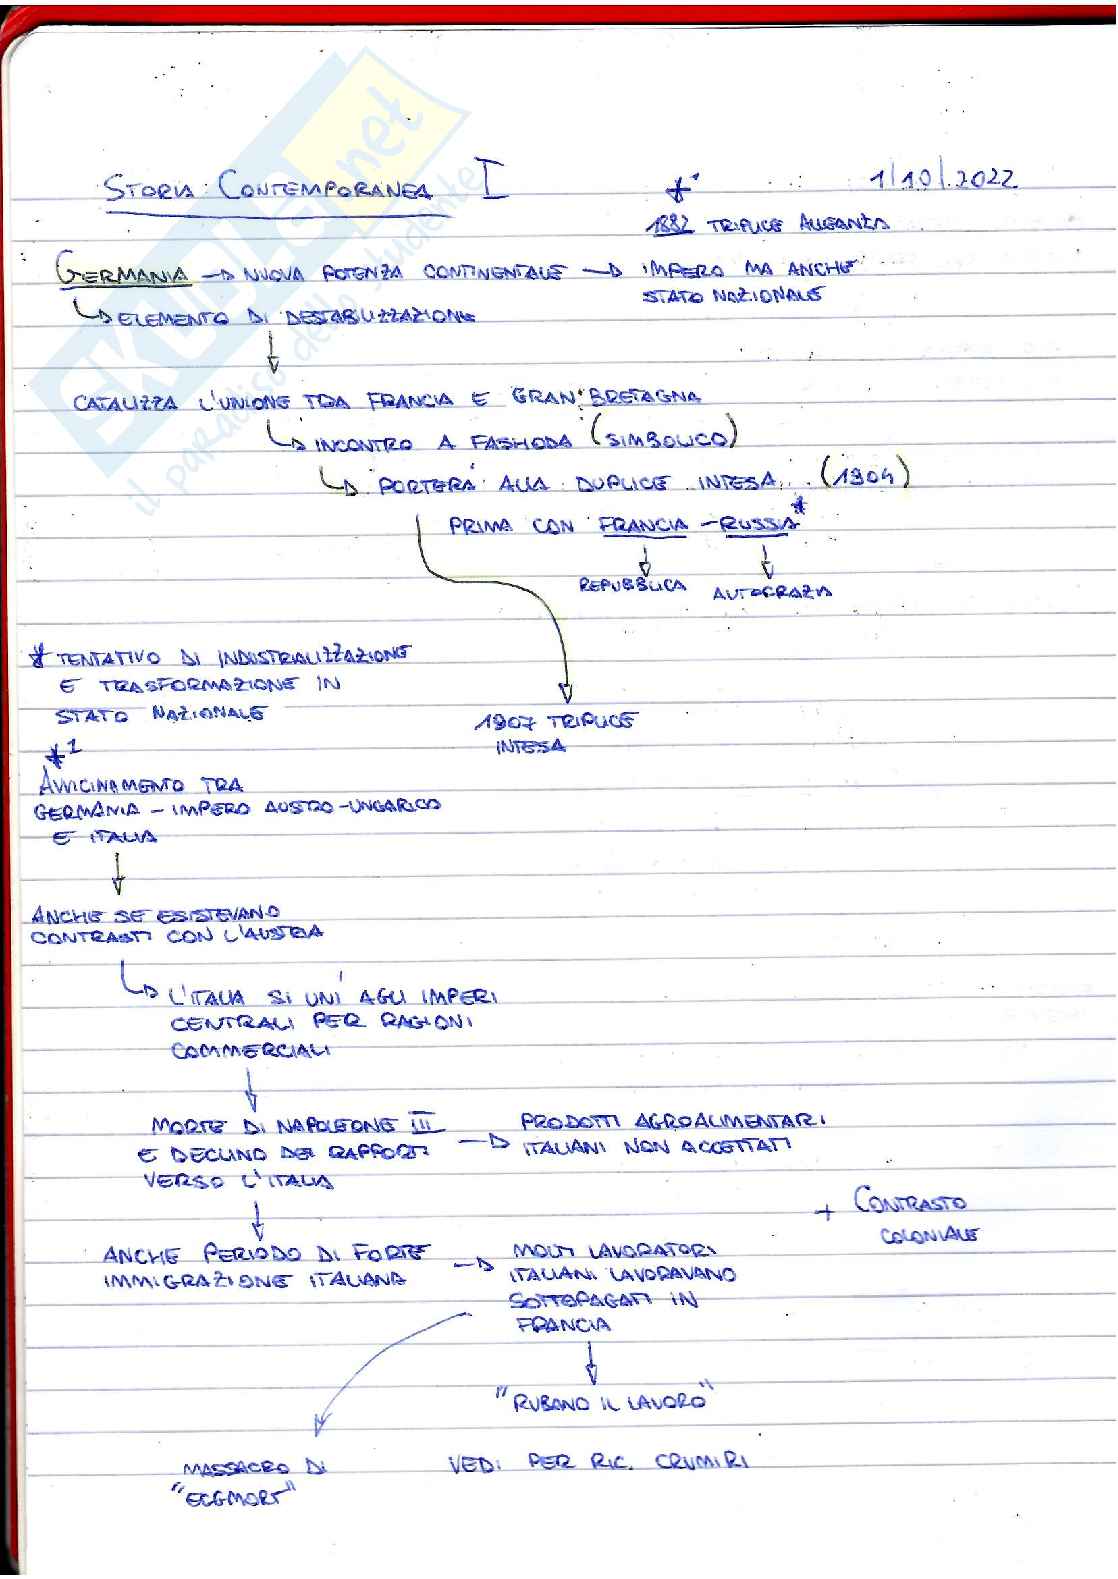 STORIA CONTEMPORANEA I
1/10/.2022
*¹
1882 TRIPLICE ALLEANZA
GERMANIA → NUOVA POTENZA CONTINENTALE → IMPERO MA ANCHE
STATO NAZIONALE
↳ ELEMENTO DI DESTABILIZZAZIONE
↓
CATALIZZA L'UNIONE TRA FRANCIA E GRAN BRETAGNA
↳ INCONTRO A FASHODA (SIMBOLICO)
↳ PORTERÀ ALLA DUPLICE INTESA (1904)
PRIMA CON FRANCIA - RUSSIA*
REPUBBLICA AUTOCRAZIA
* TENTATIVO DI INDUSTRIALIZZAZIONE
E TRASFORMAZIONE IN
STATO NAZIONALE
1907 TRIPLICE
INTESA
*1
AVVICINAMENTO TRA
GERMANIA - IMPERO AUSTRO-UNGARICO
E ITALIA
↓
ANCHE SE ESISTEVANO
CONTRASTI CON L'AUSTRIA
↳ L'ITALIA SI UNÌ AGLI IMPERI
CENTRALI PER RAGIONI
COMMERCIALI
↓
MORTE DI NAPOLEONE III → PRODOTTI AGROALIMENTARI
E DECLINO DEI RAPPORTI ITALIANI NON ACCETTATI
VERSO L'ITALIA
+ CONTRASTO
COLONIALE
↓
ANCHE PERIODO DI FORTE → MOLTI LAVORATORI
IMMIGRAZIONE ITALIANA ITALIANI LAVORAVANO
SOTTOPAGATI IN
FRANCIA
↓
"RUBANO IL LAVORO"
MASSACRO DI VEDI PER RIC. CRUMIRI
"ECGMORT"
skuola.net
il paradiso dello studente